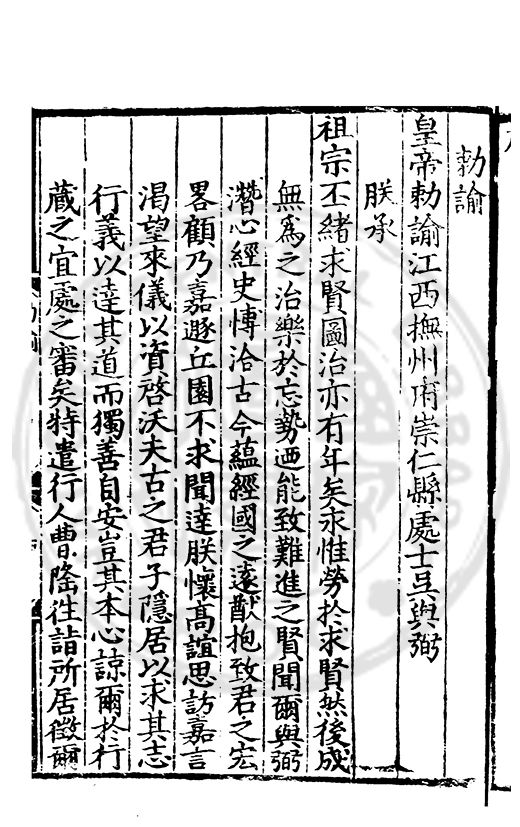 勑諭
皇帝勑諭江西撫州府崇仁縣處士吳與弼
朕承
祖宗丕緒求賢圖治亦有年矣永惟勞於求賢然後成
無爲之治樂於忘勢迺能致難進之賢聞爾與弼
潛心經史愽洽古今蘊經國之遠猷抱致君之宏
畧顧乃嘉遯丘園不求聞達朕懷高誼思訪嘉言
渴望來儀以資啓沃夫古之君子隱居以求其志
行義以達其道而獨善自安豈其本心諒爾於行
藏之宜處之審矣特遣行人曹隆徃詣所居徵爾